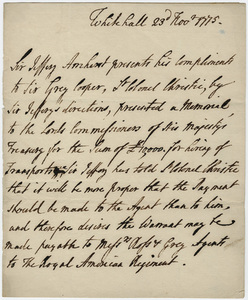 Whitehall 23d Novr 1775.
Sir Jeffery Amherst presents his Compliments
to Sir Grey Cooper, Lt Colonel Christie, by
Sir Jeffery's directions, presented a Memorial
to the Lords Commissioners of His Majesty's
Treasury for the Sum of £ for hiring of
Transports, Sir Jeffery has told Lt Colonel Christie
that it will be more proper that the Payment
should be made to the Agent than to him,
and therefore desires the Warrant may be
made payable to Messrs Ross & Grey Agents
to The Royal American Regiment.